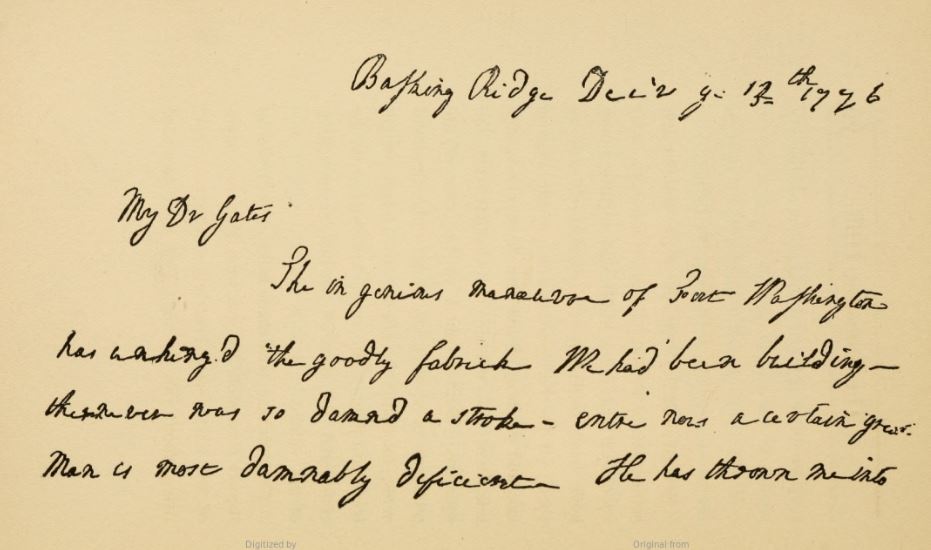 Basking Ridge Decr ye 13th 1776
My Dr Gates
The ingenious manœuvre of Fort Washington
has unhing'd the goodly fabrick We had been building—
there never was so damnd a stroke - entre nous a certain great
Man is most damnably deficient He has thrown me into
Digitized by
Original from